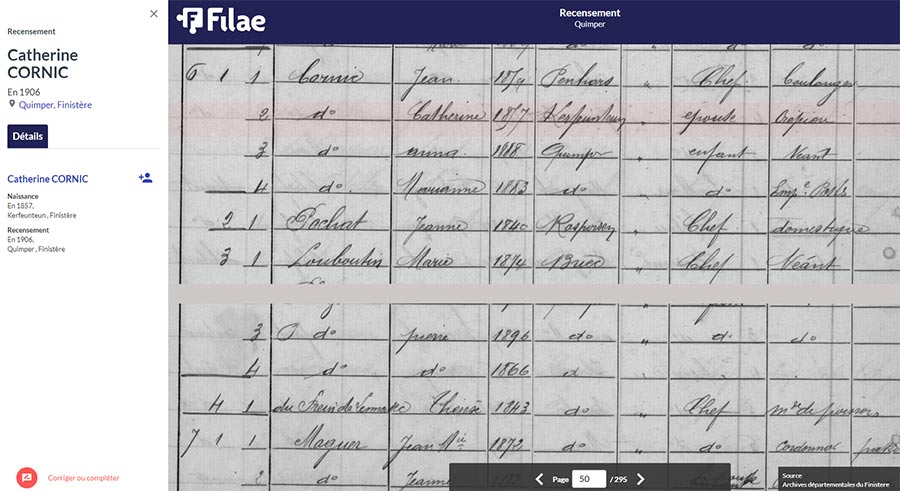 Recensement
Catherine
CORNIC
En 1906
Quimper, Finistère
Détails
Catherine CORNIC
Naissance
En 1857,
Kerfeunteun , Finistère
Recensement
En 1906,
Quimper , Finistère
Corriger ou compléter
Filae
Recensement
Quimper
6 1 1 Cornic Jean 1854 Penhars " Chef Boulanger
2 do Catherine 1857 Kerfeunteun " épouse Crépière
3 do anna 1888 Quimper " enfant Néant
4 do Marianne 1883 do " do
2 1 Pochat Jeanne 1840 Rosporden " Chef domestique
3 1 Louboutin Marie 1874 Briec " Chef Néant
3 do pierre 1896 do " d. do
4 do do 1866 d
4 1 Thérèse 1843 do " Chef
7 1 1 Maguer Jean 1872 do " do Cordonnier
2 do Jeanne
Page 50 / 295
Source
Archives départementales du Finistere